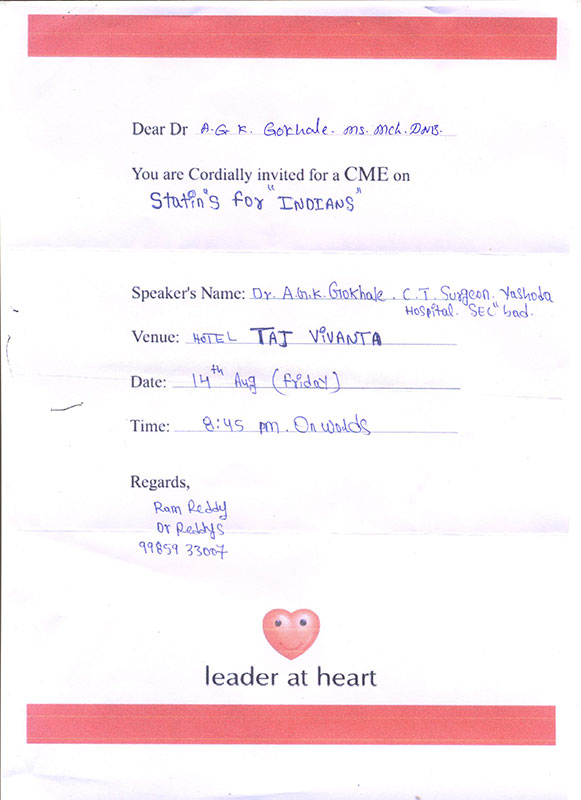 Dear Dr A.G.K. Gokhale. MS. Mch. DNB.
You are Cordially invited for a CME on
Statin's for "INDIANS"
Speaker's Name: Dr. A.G.K. Gokhale. C.T. Surgeon. Yashoda
Hospital. SEC"bad.
Venue: HOTEL TAJ VIVANTA
Date: 14th Aug (Friday)
Time: 8:45 pm. Onwards
Regards,
Ram Reddy
Dr Reddys
99859 33007
leader at heart